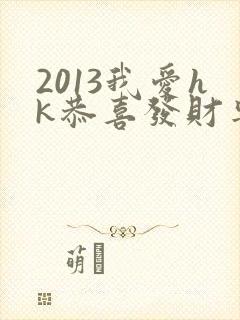 2013我愛h
k恭喜發財
萌